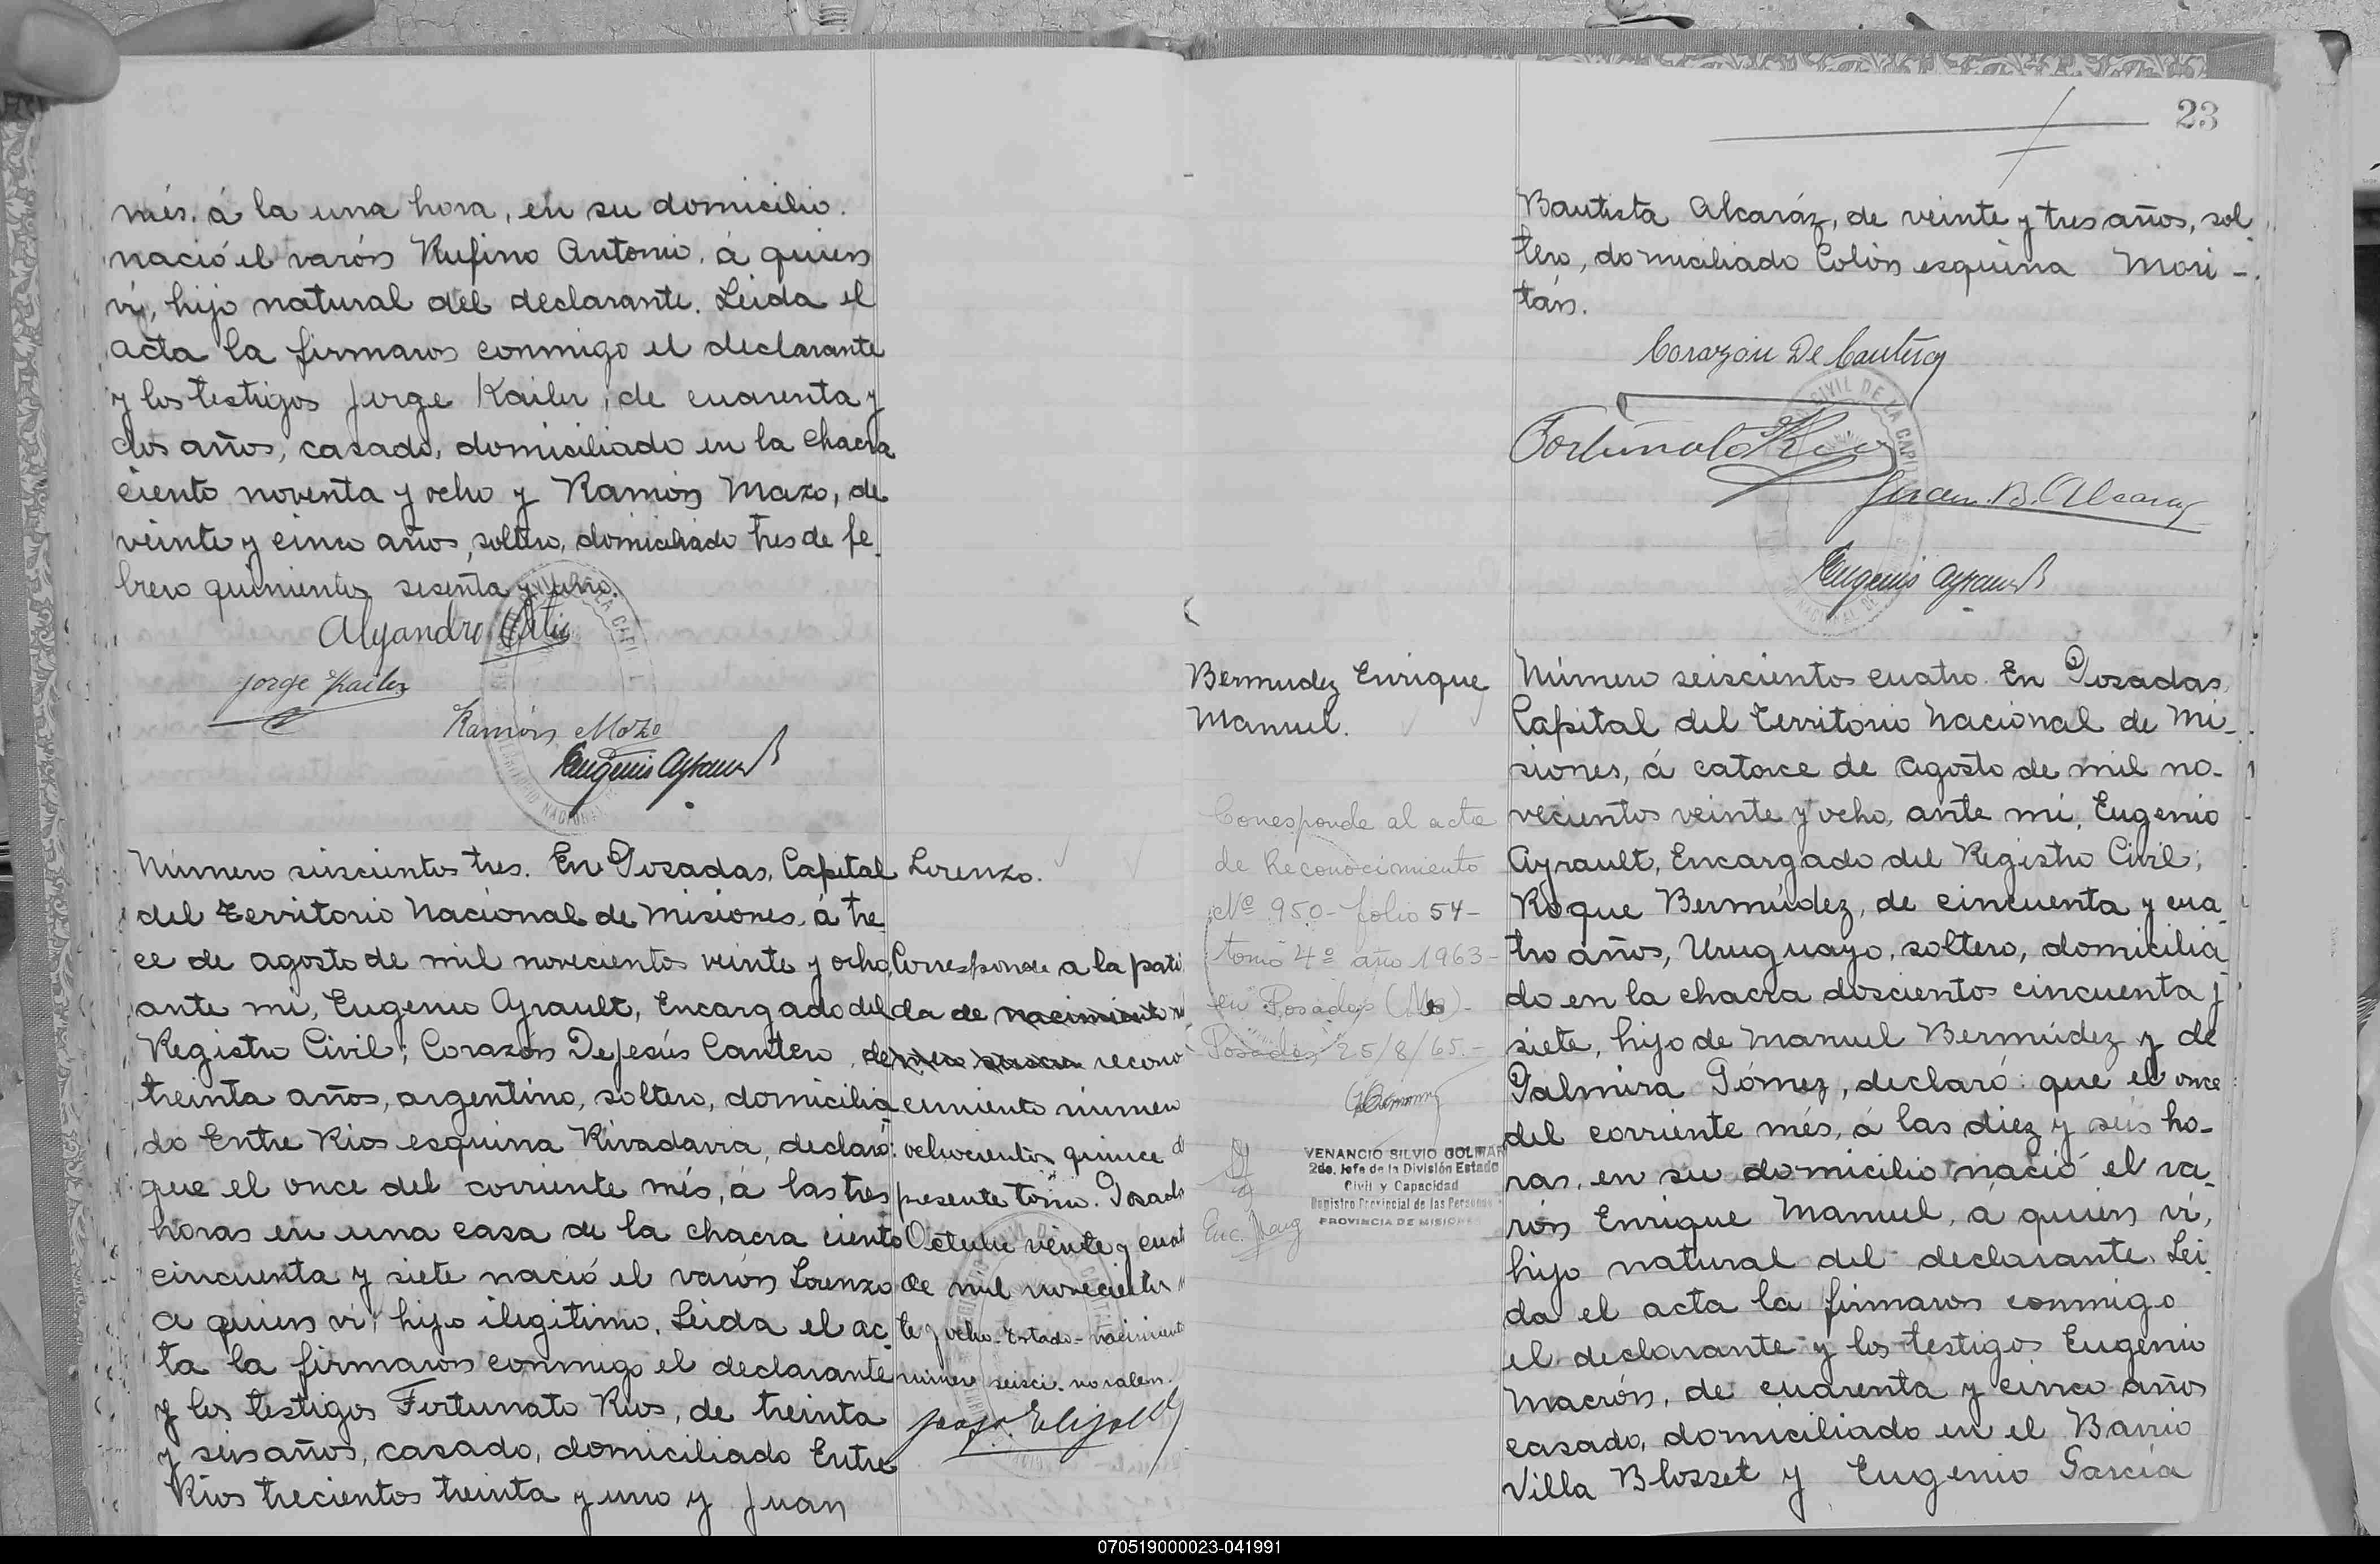 més. á la una hora, en su domicilio.
nació el varón Rufino Antonio, á quien
ví, hijo natural del declarante. Leida el
acta la firmaron conmigo el declarante
y los testigos Jorge Kailer, de cuarenta y
dos años, casado, domiciliado en la chacra
ciento noventa y ocho y Ramón Mazo, de
veinte y cinco años, soltero, domiciliado tres de fe-
brero quinientos sesenta y uno.
Alejandro Ortiz
Jorge Kailer
Ramón Mozo
Eugenio Ayrault
Número seiscientos tres. En Posadas, Capital
del Territorio Nacional de Misiones, á tre-
ce de agosto de mil novecientos veinte y ocho,
ante mi, Eugenio Ayrault, Encargado del
Registro Civil; Corazón De Jesús Cantero, de
treinta años, argentino, soltero, domicilia-
do Entre Rios esquina Rivadavia, declaró:
que el once del corriente més, á las tres
horas en una casa de la chacra ciento
cincuenta y siete nació el varón Lorenzo
a quien ví, hijo ilegitimo. Leida el ac-
ta la firmaron conmigo el declarante
y los testigos Fortunato Rios, de treinta
y seis años, casado, domiciliado Entre
Rios trecientos treinta y uno y Juan
Lorenzo.
Corresponde a la parti
da de nacimiento
recono
cimiento número
ochocientos quince d
presente tomo. Posada
Octubre veinte y cuat
de mil novecientos
te y ocho. Testado - nacimiento
número seisci. no valen.
23
Bautista Alcaráz, de veinte y tres años, sol-
tero, domiciliado Colón esquina Mori-
tán.
Corazón De Cantero
Fortunato Rios
Juan B. Alcaraz
Eugenio Ayrault
Bermudez Enrique
Manuel.
Corresponde al acta
de Reconocimiento
Nº 950 - folio 54 -
tomo 4º año 1963 -
en Posadas (Ms) -
Posadas 25/8/65. -
VENANCIO SILVIO GOLMAN
2do. Jefe de la División Estado
Civil y Capacidad
Registro Provincial de las Personas
PROVINCIA DE MISIONES
Número seiscientos cuatro. En Posadas,
Capital del Territorio Nacional de Mi-
siones, á catorce de agosto de mil no-
vecientos veinte y ocho, ante mi, Eugenio
Ayrault, Encargado del Registro Civil;
Roque Bermúdez, de cincuenta y cua-
tro años, Uruguayo, soltero, domicilia-
do en la chacra doscientos cincuenta y
siete, hijo de Manuel Bermúdez y de
Palmira Gómez, declaró: que el once
del corriente més, á las diez y seis ho-
ras, en su domicilio nació el va-
rón Enrique Manuel, á quien ví,
hijo natural del declarante. Lei-
da el acta la firmaron conmigo
el declarante y los testigos Eugenio
Macrón, de cuarenta y cinco años
casado, domiciliado en el Barrio
Villa Blosset y Eugenio García
070519000023-041991